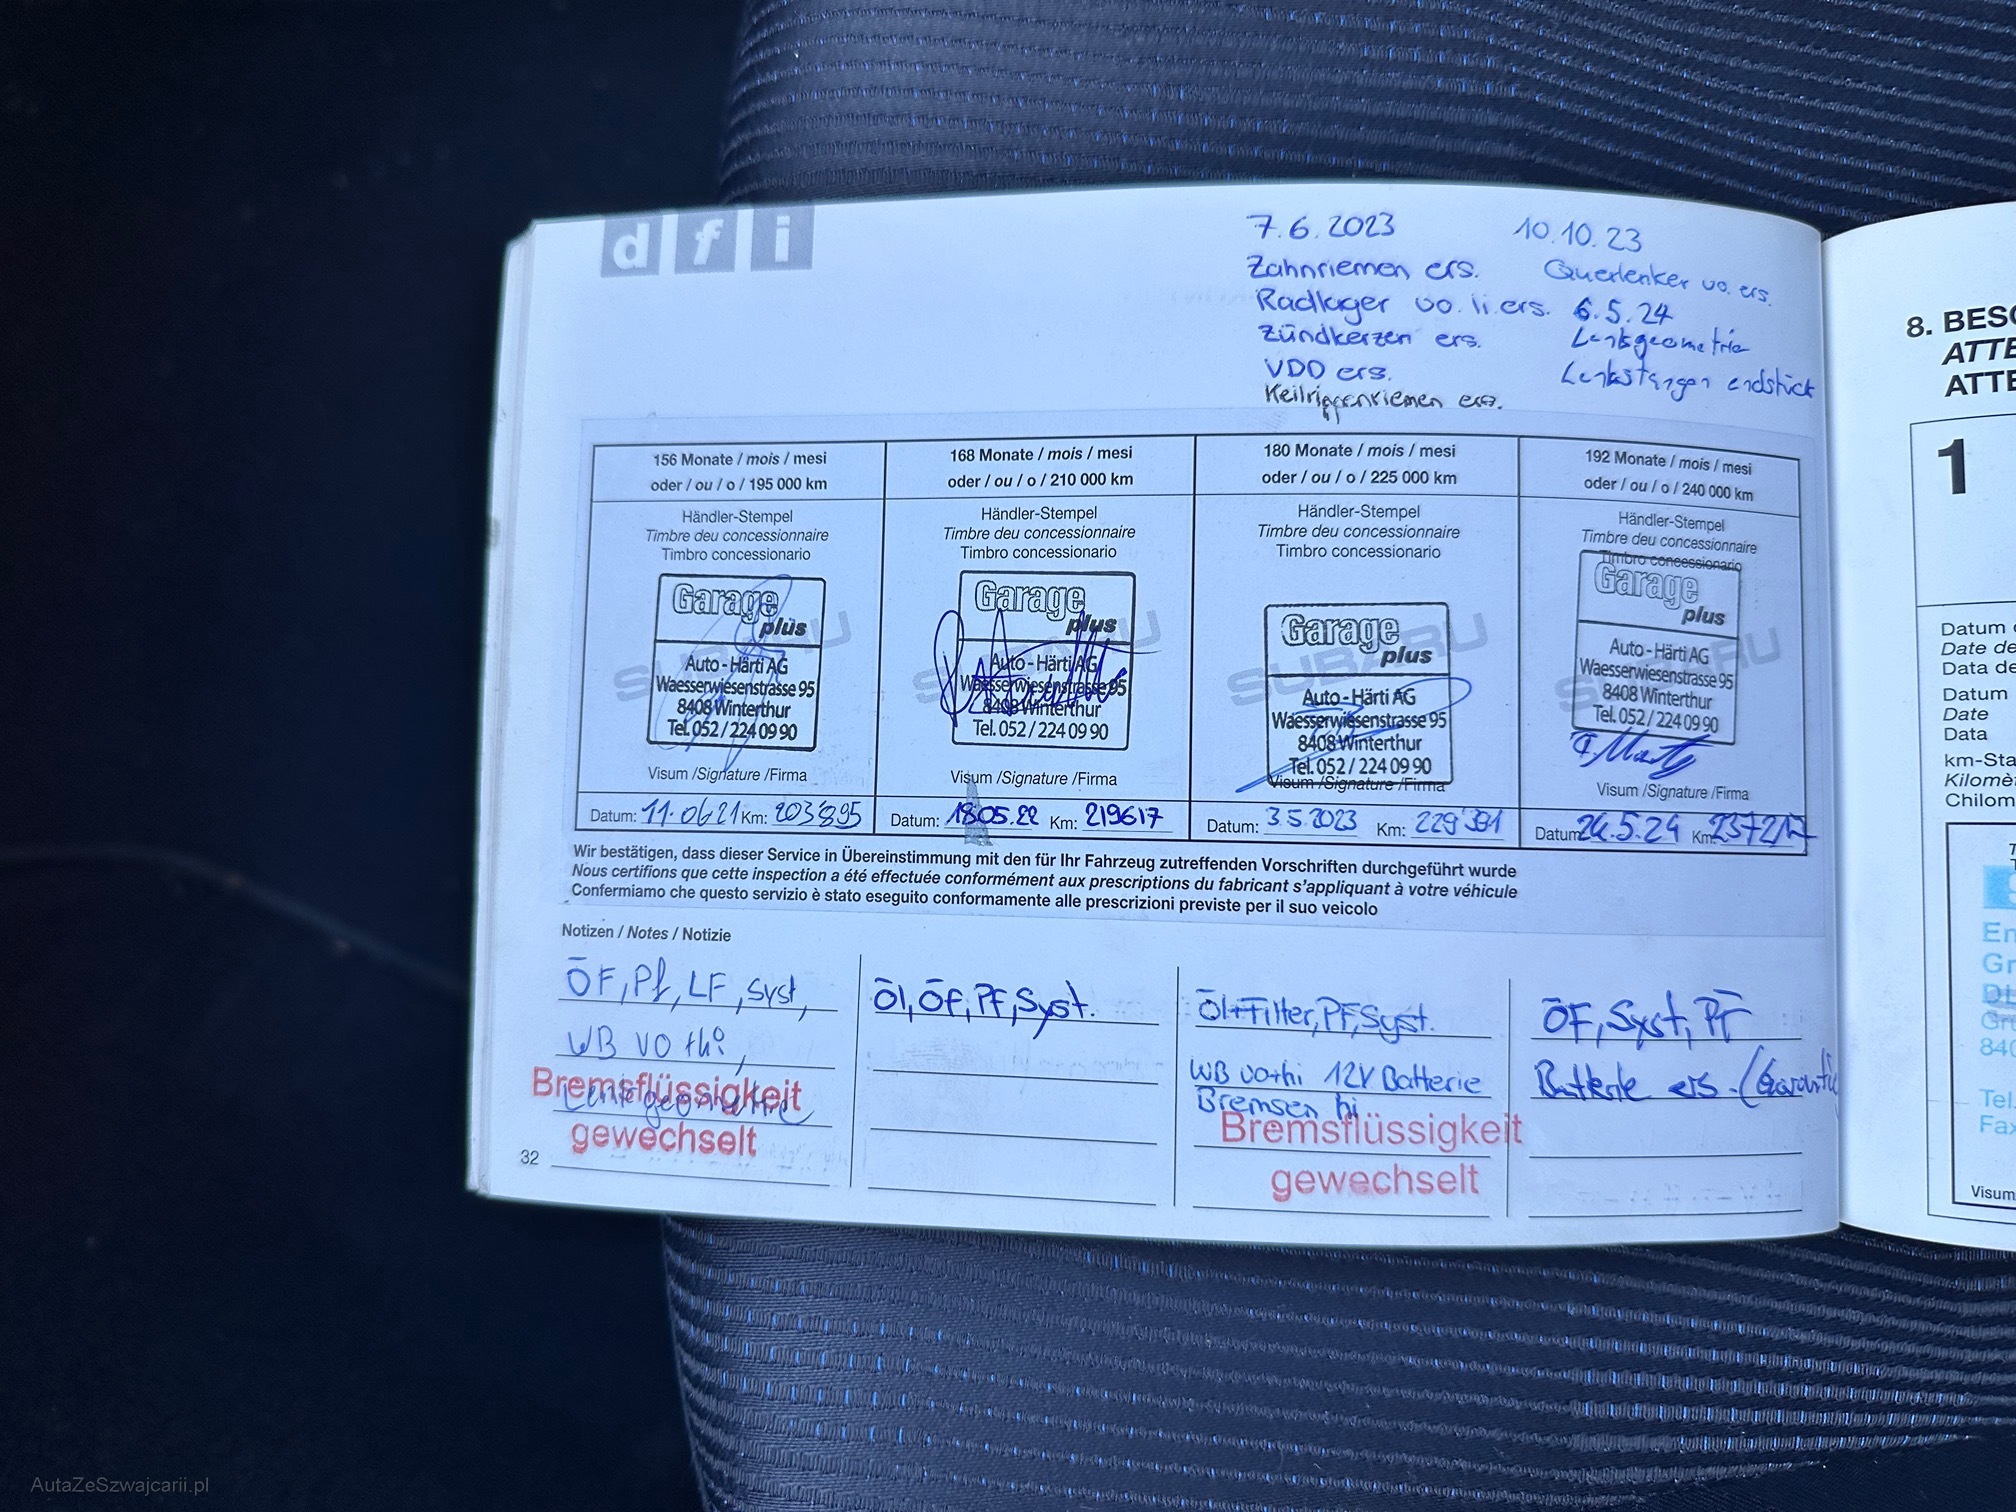 d f i
7.6.2023
Zahnriemen ers.
Radlager vo. li. ers.
Zündkerzen ers.
VDD ers.
Keilrippenriemen ers.
10.10.23
Querlenker vo. ers.
6.5.24
Lenkgeometrie
Lenkstangen endstück
156 Monate / mois / mesi
oder / ou / o / 195 000 km
Händler-Stempel
Timbre deu concessionnaire
Timbro concessionario
SUBARU
Garage
plus
Auto-Härti AG
Waesserwiesenstrasse 95
8408 Winterthur
Tel. 052 / 224 09 90
Visum /Signature /Firma
Datum: 11.06.21 Km: 203'895
168 Monate / mois / mesi
oder / ou / o / 210 000 km
Händler-Stempel
Timbre deu concessionnaire
Timbro concessionario
SUBARU
Garage
plus
Auto-Härti AG
Waesserwiesenstrasse 95
8408 Winterthur
Tel. 052 / 224 09 90
Visum /Signature /Firma
Datum: 18.05.22 Km: 219617
180 Monate / mois / mesi
oder / ou / o / 225 000 km
Händler-Stempel
Timbre deu concessionnaire
Timbro concessionario
SUBARU
Garage
plus
Auto-Härti AG
Waesserwiesenstrasse 95
8408 Winterthur
Tel. 052 / 224 09 90
Visum /Signature /Firma
Datum: 3.5.2023 Km: 229'391
192 Monate / mois / mesi
oder / ou / o / 240 000 km
Händler-Stempel
Timbre deu concessionnaire
Timbro concessionario
SUBARU
Garage
plus
Auto-Härti AG
Waesserwiesenstrasse 95
8408 Winterthur
Tel. 052 / 224 09 90
Visum /Signature /Firma
Datum 24.5.24 Km:
Wir bestätigen, dass dieser Service in Übereinstimmung mit den für Ihr Fahrzeug zutreffenden Vorschriften durchgeführt wurde
Nous certifions que cette inspection a été effectuée conformément aux prescriptions du fabricant s'appliquant à votre véhicule
Confermiamo che questo servizio è stato eseguito conformamente alle prescrizioni previste per il suo veicolo
Notizen / Notes / Notizie
ÖF, Pf, LF, Syst,
WB vo + hi,
Lenkgeometrie
Bremsflüssigkeit
gewechselt
Öl, ÖF, PF, Syst.
Öl+Filter, PF, Syst.
WB vo+hi 12V Batterie
Bremsen hi
Bremsflüssigkeit
gewechselt
ÖF, Syst, PF
Batterie ers. (Garantie
32
8. BESC
ATTE
ATTE
1
Datum
Date de
Data de
Datum
Date
Data
km-Sta
Kilomè
Chilom
En
Gr
DL
Gru
840
Tel.
Fax
Visum
AutaZeSzwajcarii.pl